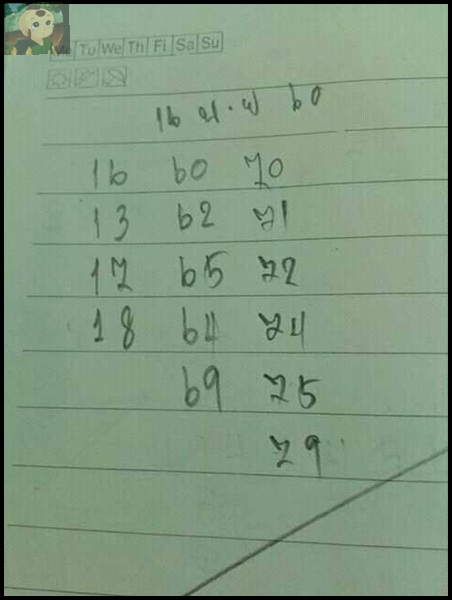 Tu We Th Fr Sa Su
16 60
16 60 70
13 62 71
17 65 72
18 64 74
69 75
79